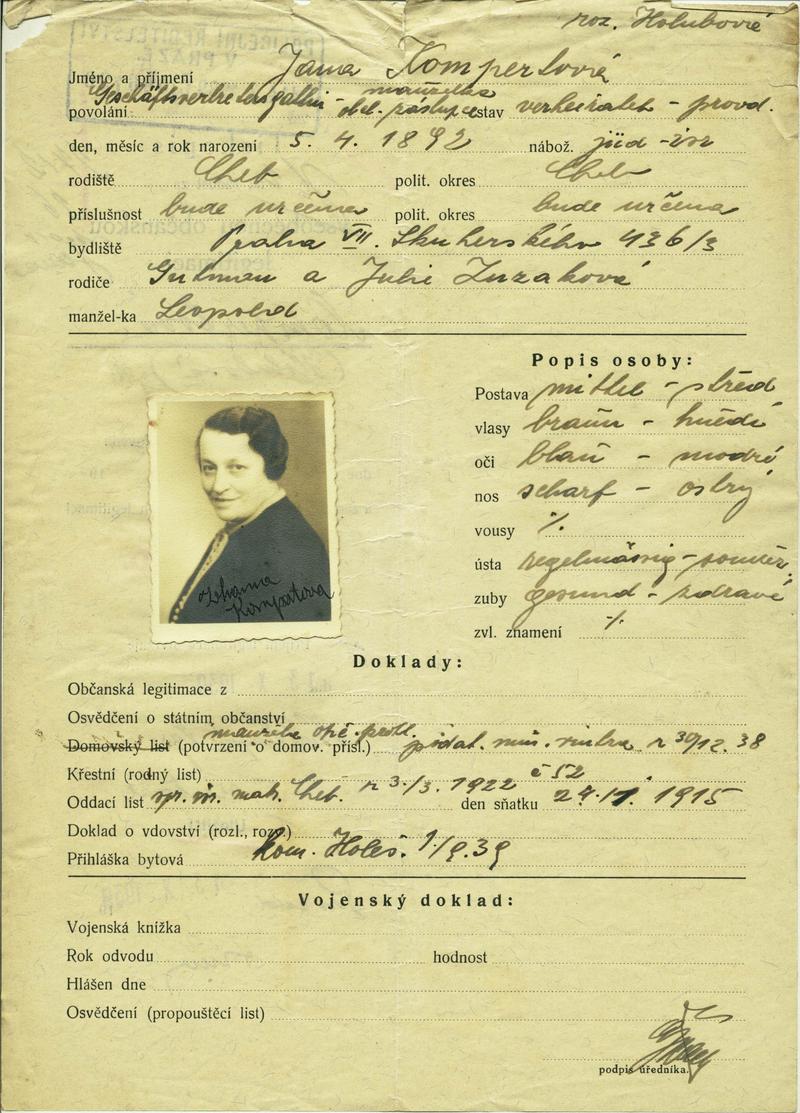 roz. Holubová
Jméno a příjmení Jana Kompertová
Geschäftsvertretersgattin - manželka
povolání obch. zástupce stav verheiratet - provd.
den, měsíc a rok narození 5. 4. 1892 nábož. jüd - isr
rodiště Cheb polit. okres Cheb
příslušnost bude určena polit. okres bude určena
bydliště Praha VII. Skuherského 436/3
rodiče Gutman a Julie
manžel-ka Leopold
Popis osoby:
Postava mittel - střed
vlasy braun - hnědé
oči blau - modré
nos scharf - ostrý
vousy ·/.
ústa regelmässig - souměr.
zuby gesund - zdravé
zvl. znamení ·/.
Doklady:
Občanská legitimace z
Osvědčení o státním občanství
Domovský list (potvrzení o domov. přísl.) 30/12. 38
Křestní (rodný list)
Oddací list Cheb. z 3/3. 1922 č 52 den sňatku 1915
Doklad o vdovství (rozl., rozv.)
Přihláška bytová kom. Holeš. 1/9.39
Vojenský doklad:
Vojenská knížka
Rok odvodu hodnost
Hlášen dne
Osvědčení (propouštěcí list)
podpis úředníka.